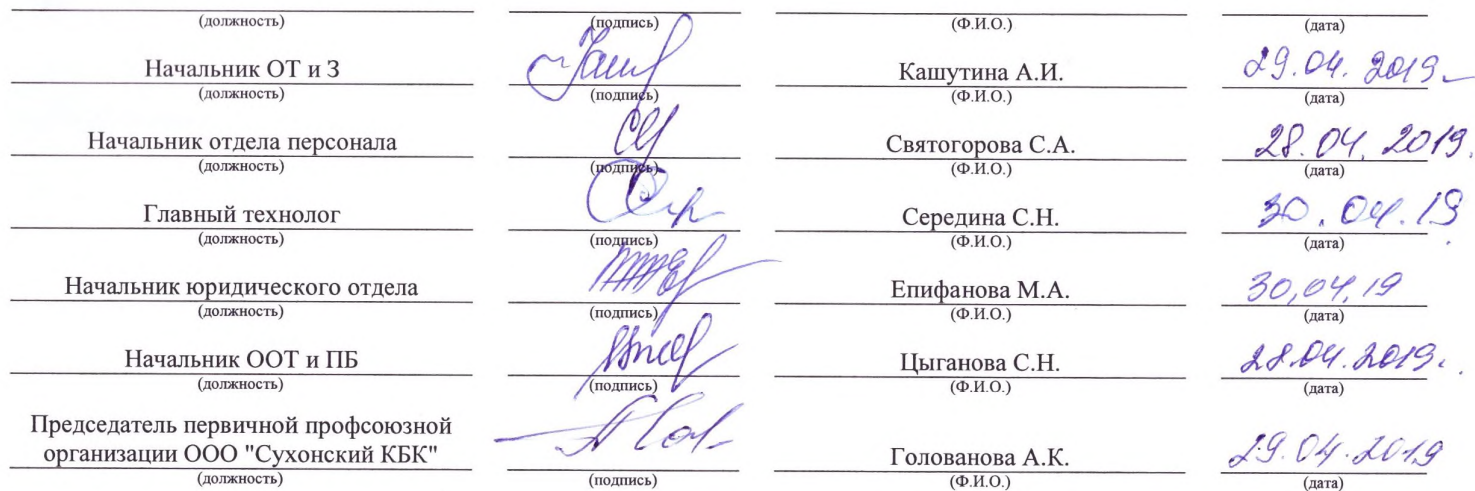 (должность) (подпись) (Ф.И.О.) (дата)
Начальник ОТ и З Кашутина А.И. 29.04.2019
(должность) (подпись) (Ф.И.О.) (дата)
Начальник отдела персонала Святогорова С.А. 28.04.2019.
(должность) (подпись) (Ф.И.О.) (дата)
Главный технолог Середина С.Н. 30.04.19
(должность) (подпись) (Ф.И.О.) (дата)
Начальник юридического отдела Епифанова М.А. 30.04.19
(должность) (подпись) (Ф.И.О.) (дата)
Начальник ООТ и ПБ Цыганова С.Н. 28.04.2019.
(должность) (подпись) (Ф.И.О.) (дата)
Председатель первичной профсоюзной
организации ООО "Сухонский КБК" Голованова А.К. 29.04.2019
(должность) (подпись) (Ф.И.О.) (дата)